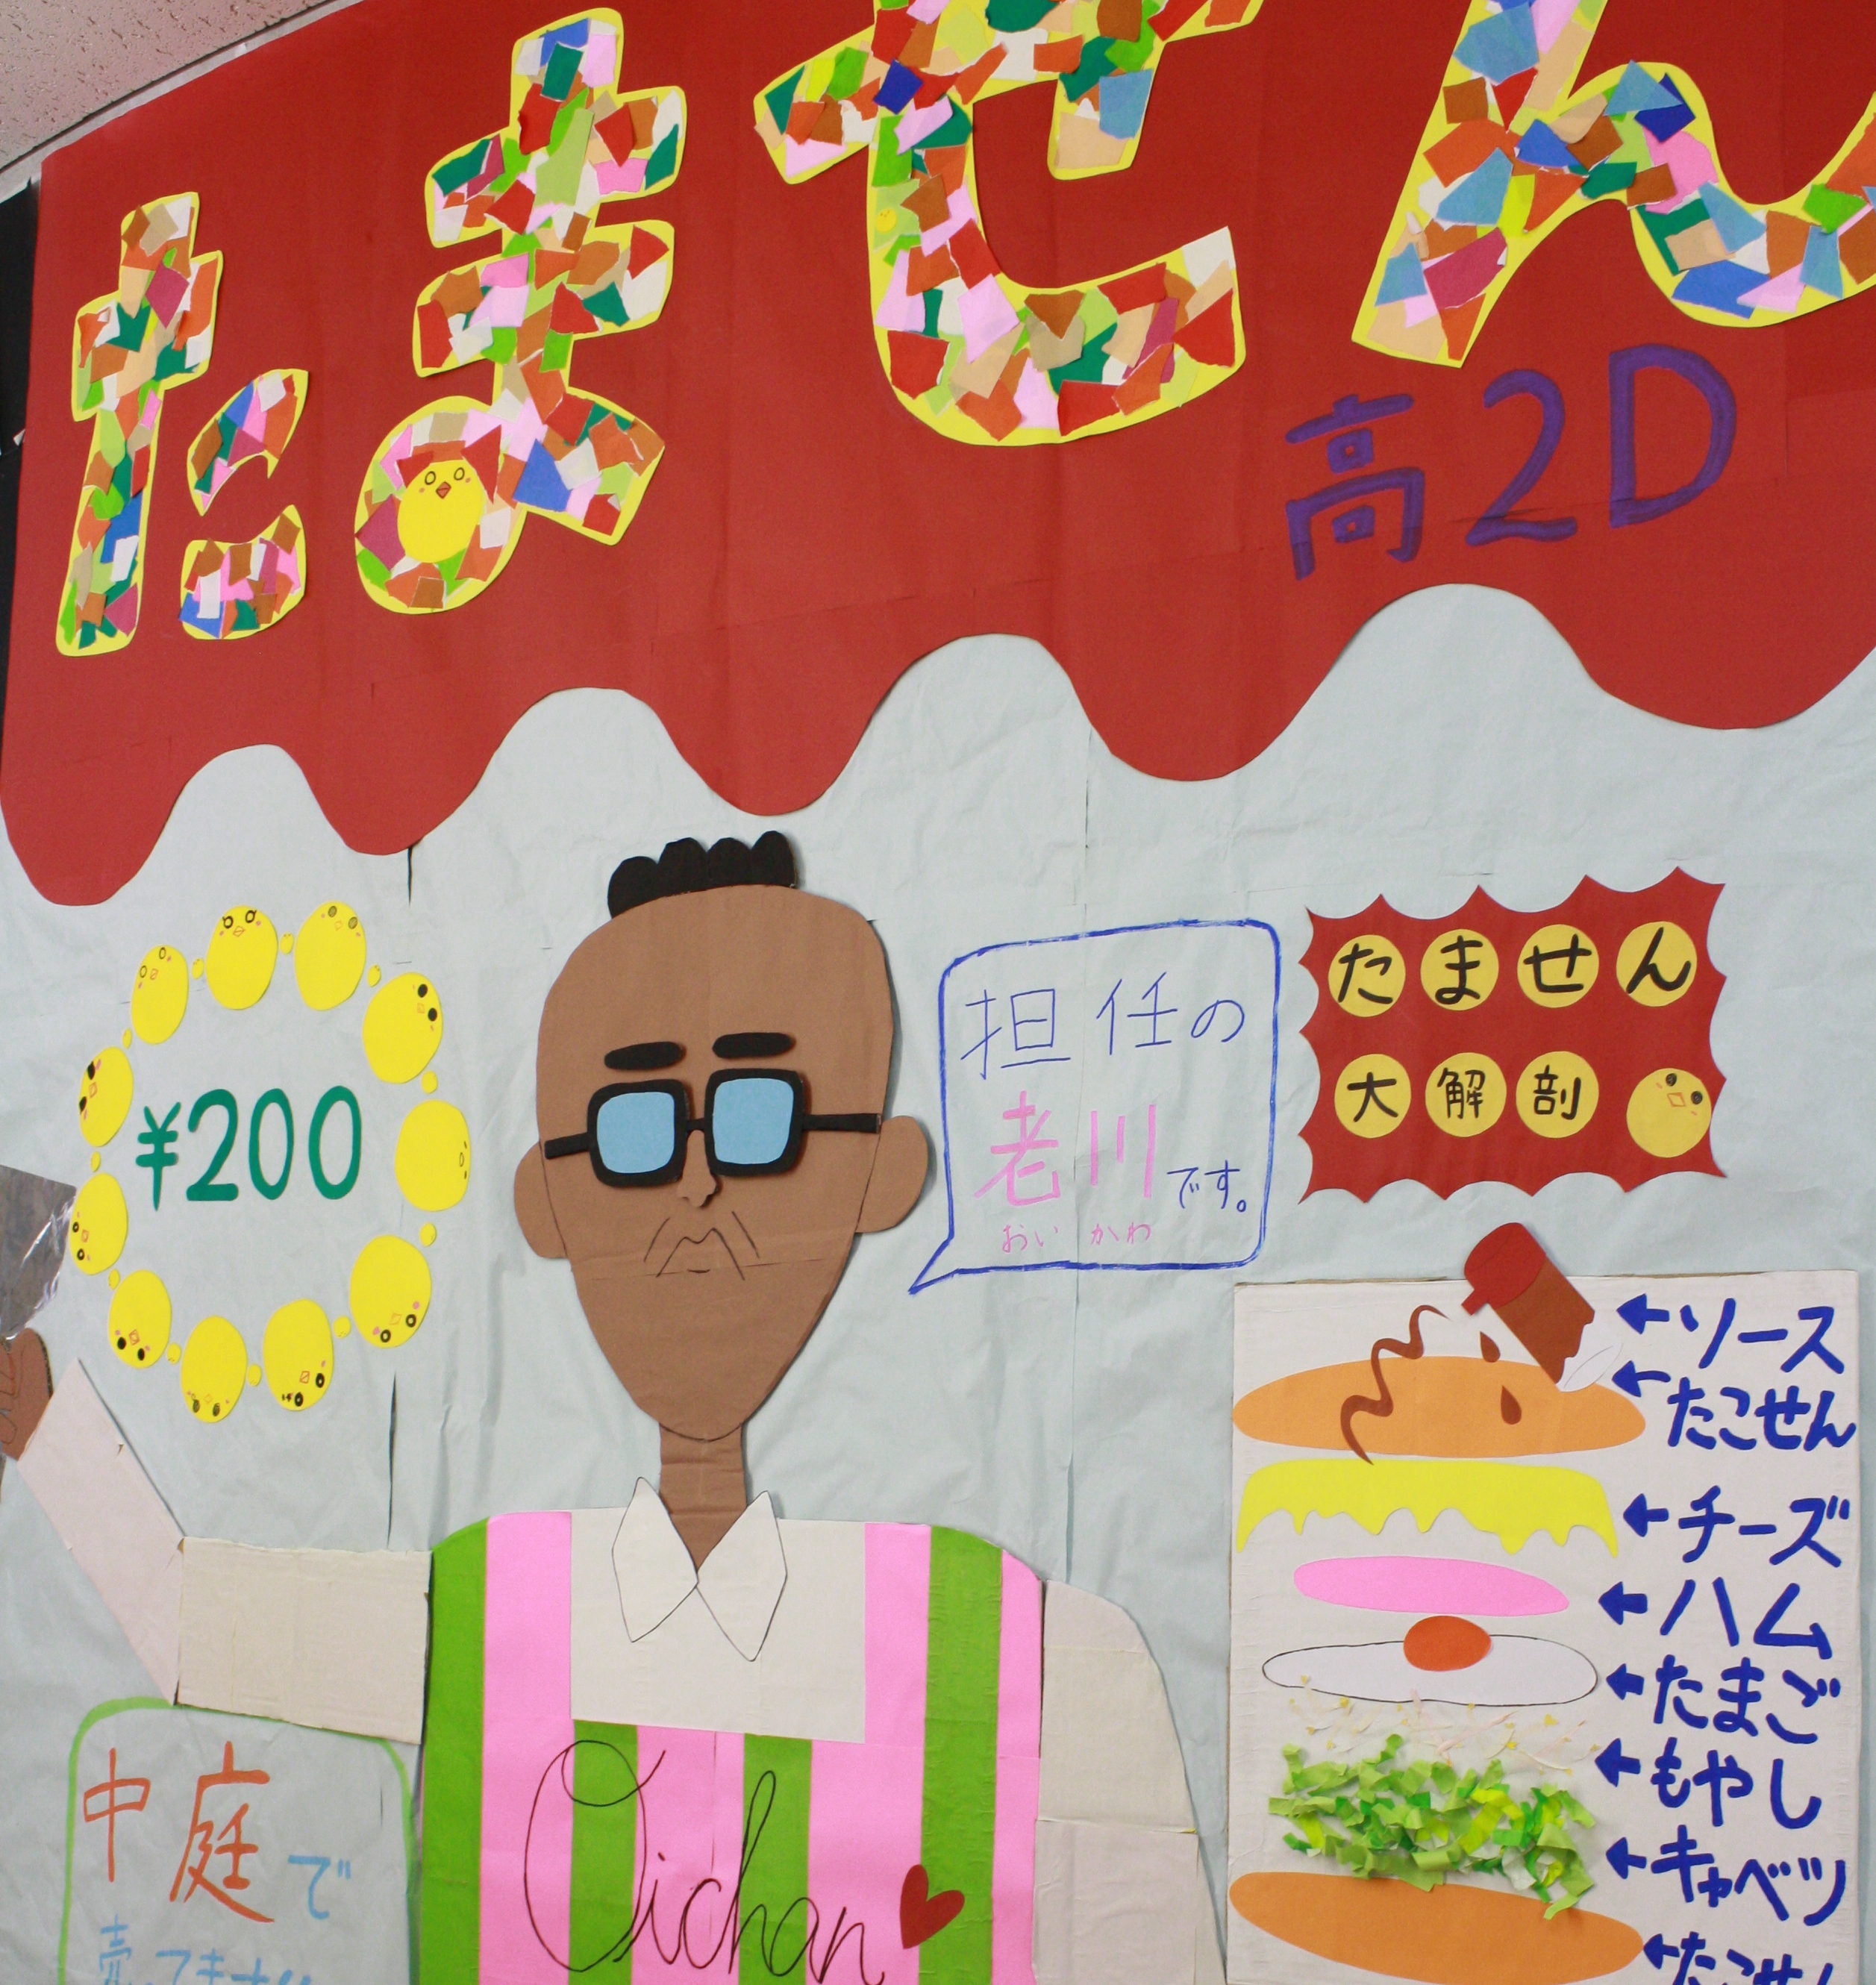 たません
高2D
¥200
担任の
老川です。
おいかわ
たません
大解剖
←ソース
←たこせん
←チーズ
←ハム
←たまご
←もやし
←キャベツ
←たこせん
Oichan
中庭で